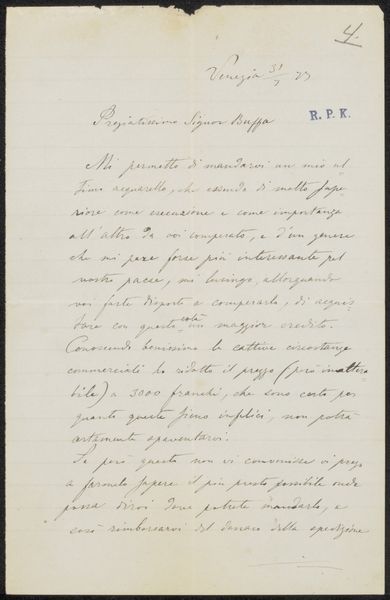 4.
Venezia 31/7 73
R. P. K.
Pregiatissimo Signor Buffa
Mi permetto di mandarvi un mio ul
timo acquarello, che essendo di molto supe-
riore come esecuzione e come importanza
all'altro da voi comperato, e d'un genere
che mi pare forse più interessante pel
vostro paese, mi lusingo, allorquando
voi foste disposto a comperarlo, di acquis-
tare con questo costà un maggior credito.
Conoscendo benissimo le cattive circostanze
commerciali ho ridotto il prezzo (però inaltera
bile) a 3000 franchi, che sono certo per
quanto questi sieno infelici, non potrà
certamente spaventarvi.
Se però questo non vi convenisse vi prego
a farmelo sapere il più presto possibile onde
possa dirvi dove potrete mandarlo, e
così rimborsarvi del denaro della spedizione